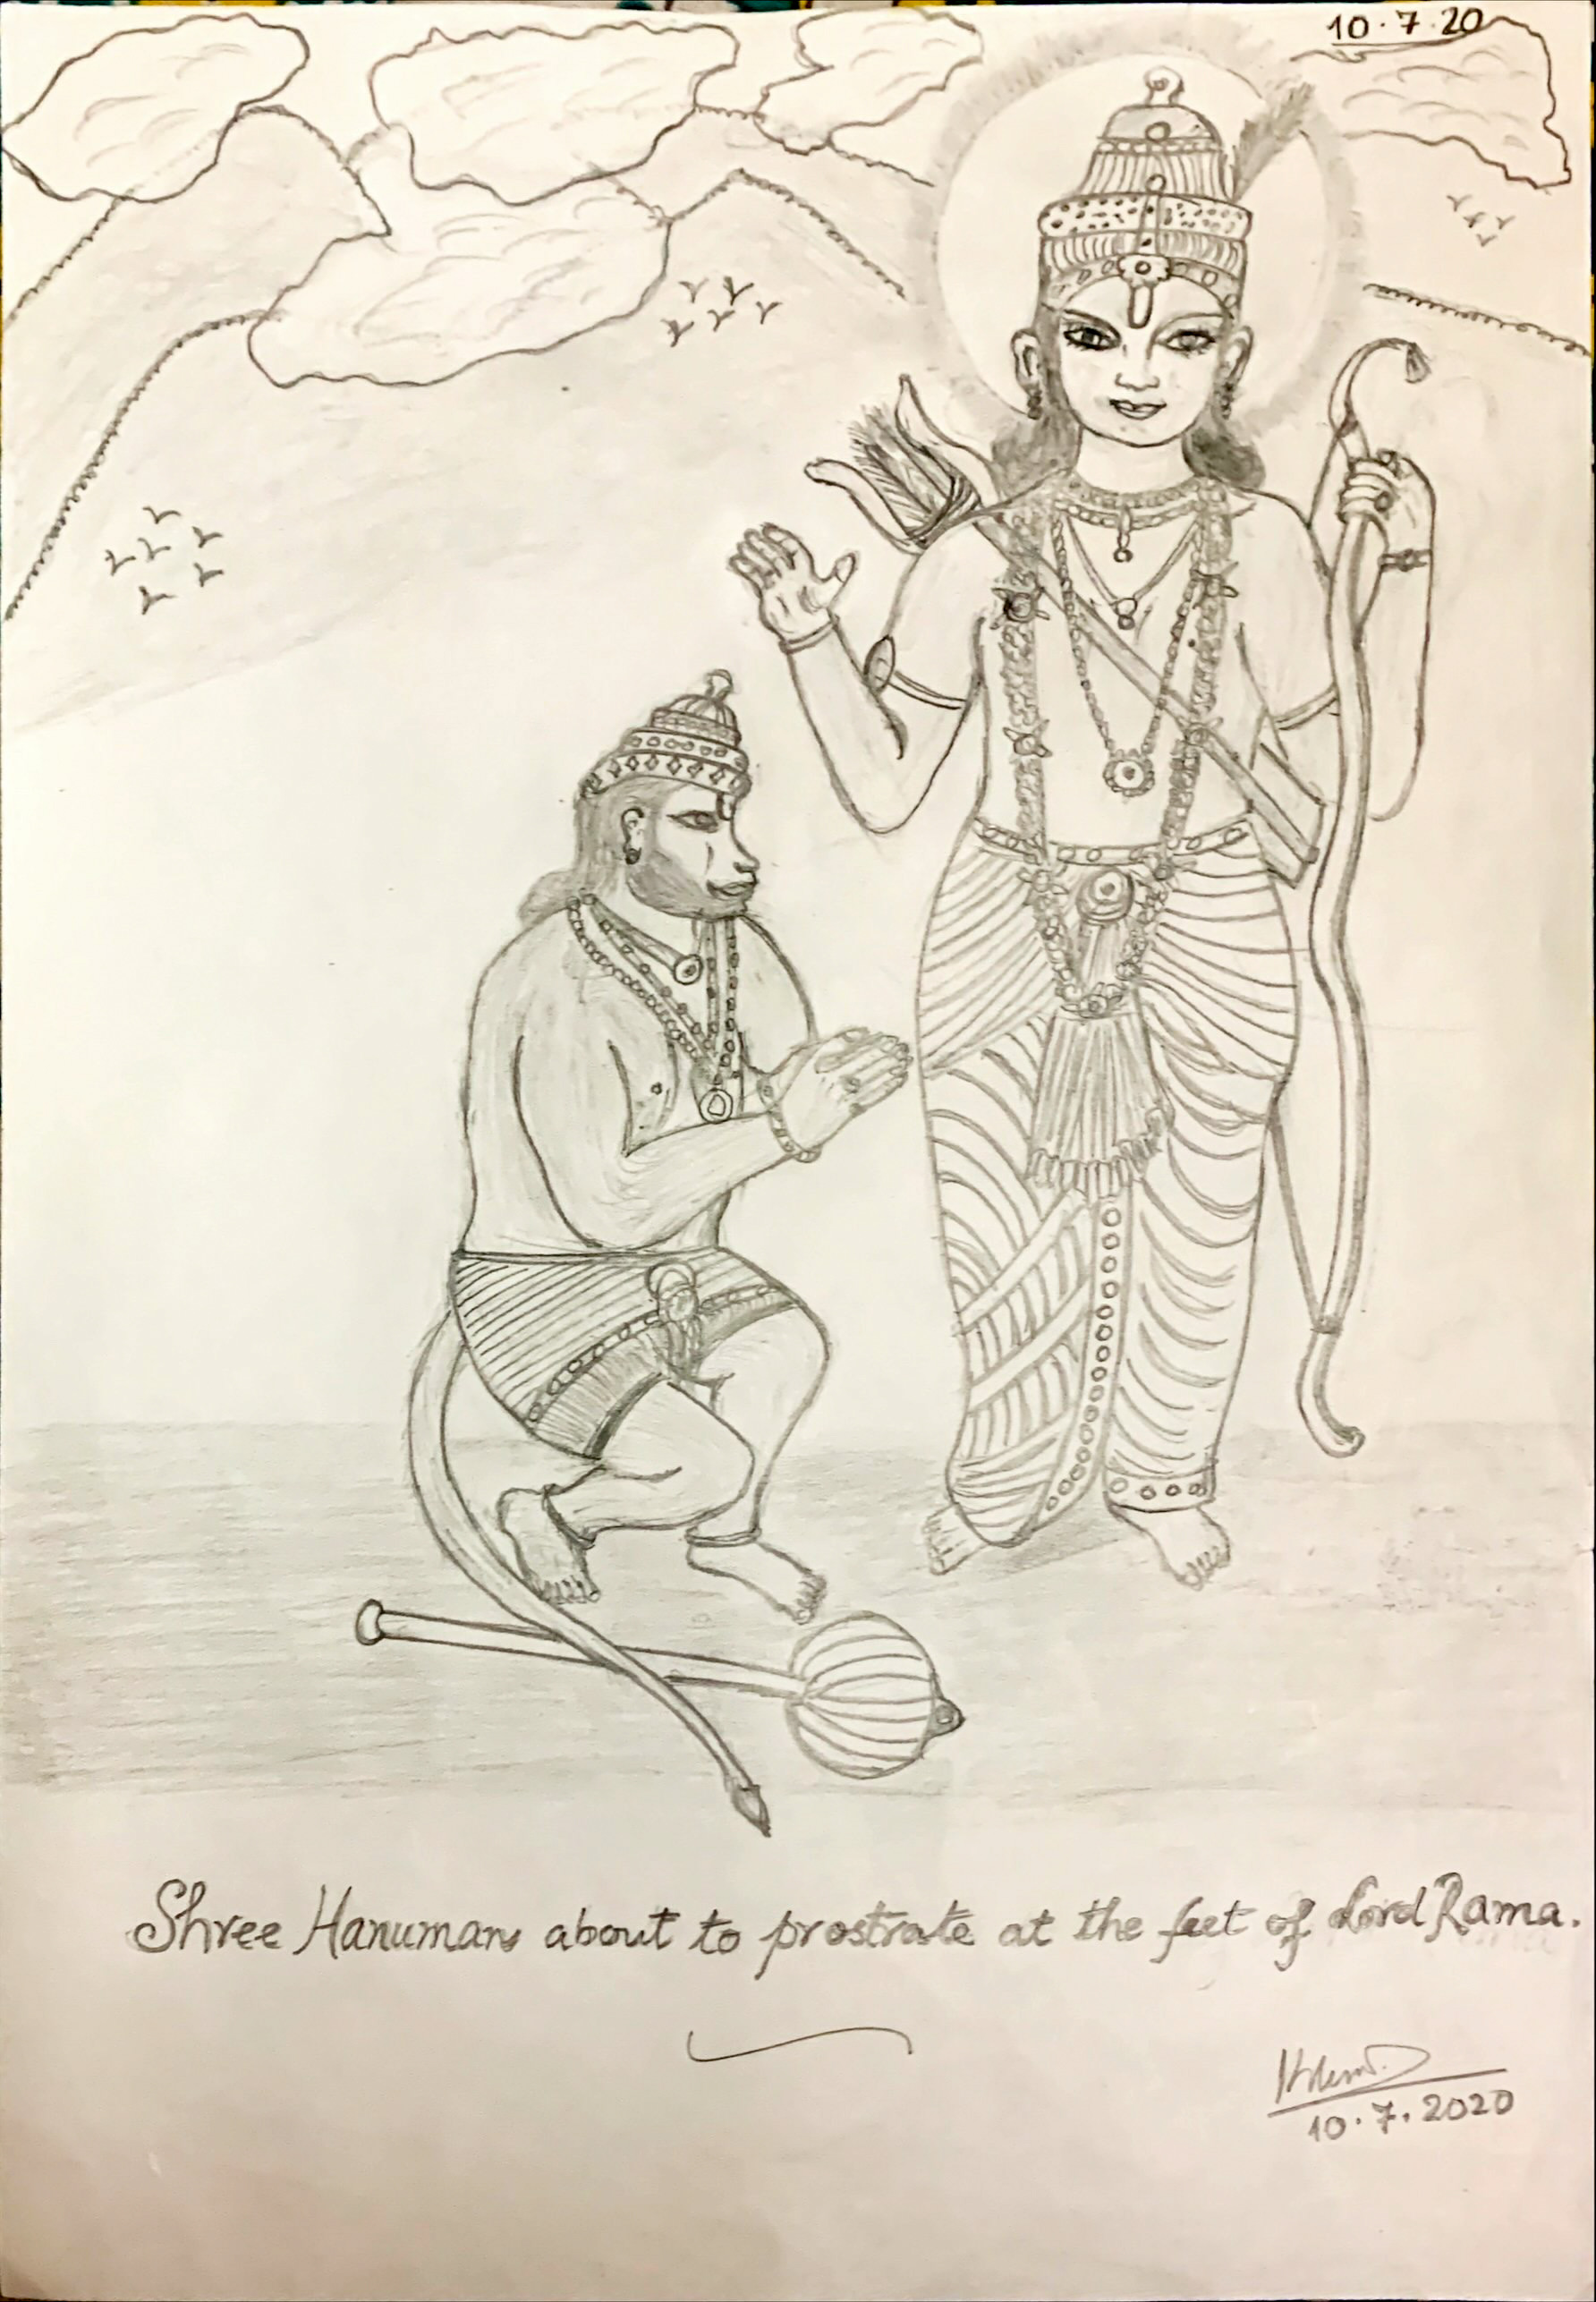 10.7.20
Shree Hanuman about to prostrate at the feet of Lord Rama.
10.7.2020